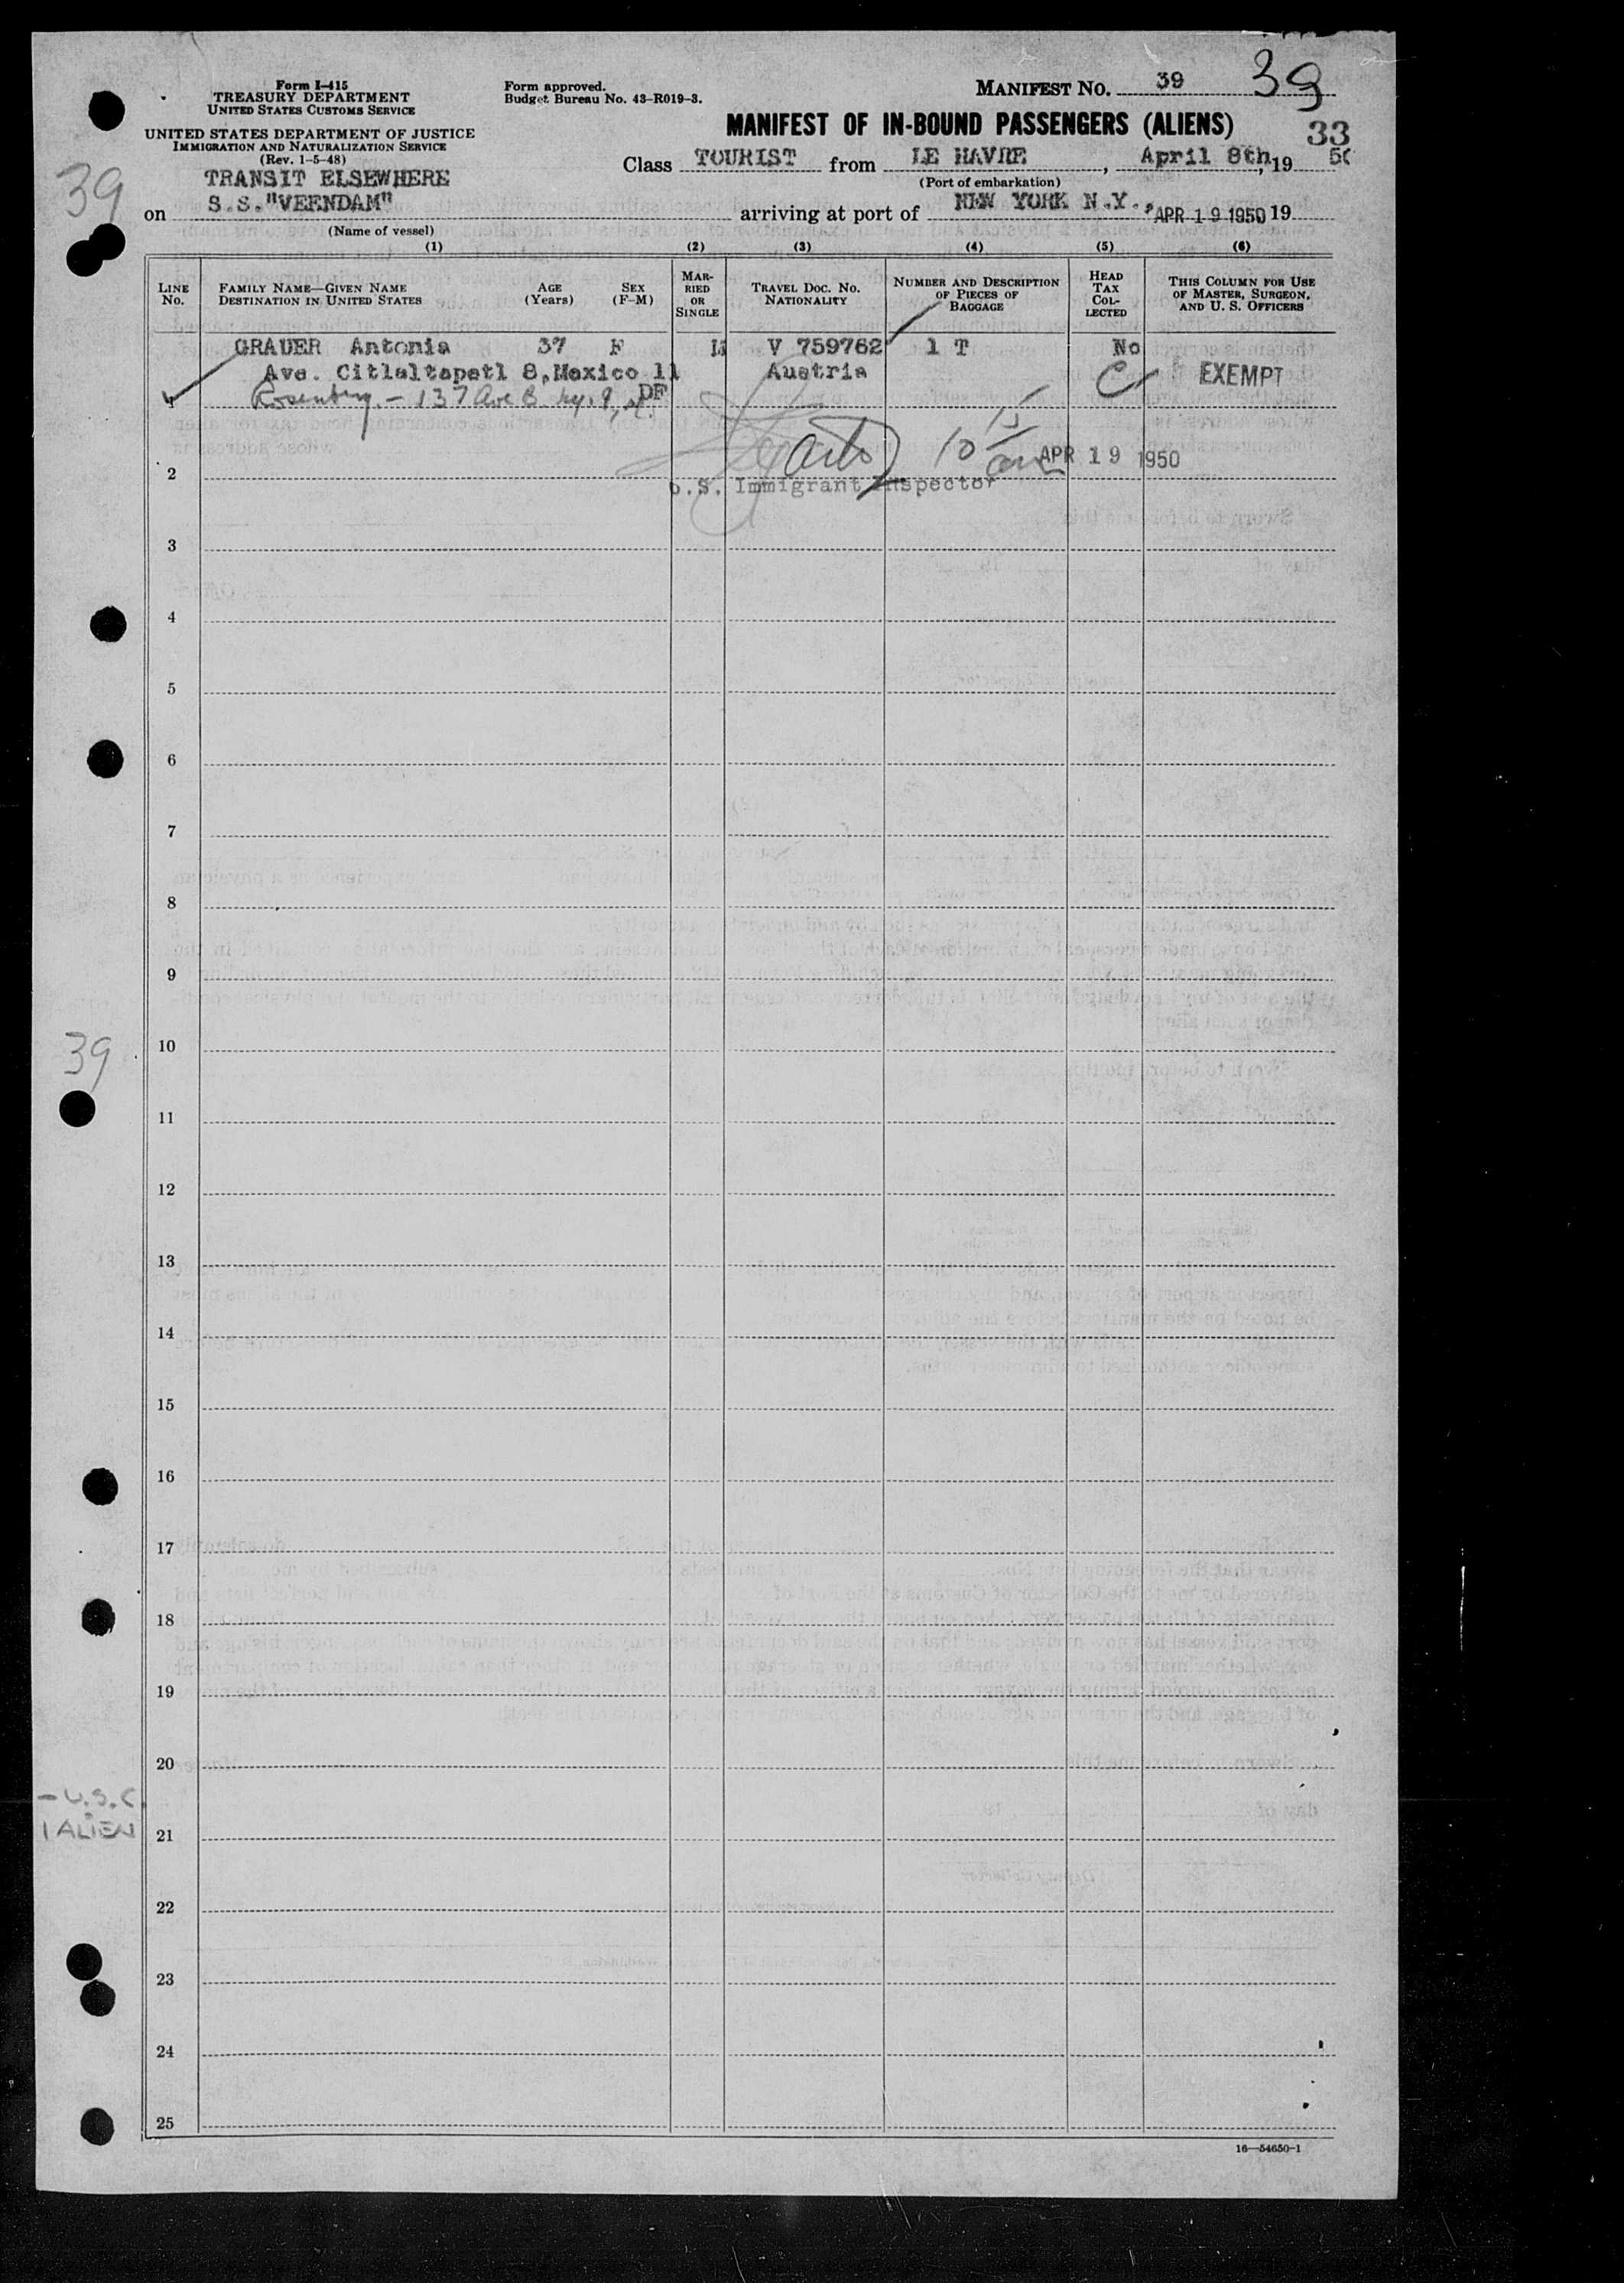 Form I-415
TREASURY DEPARTMENT
UNITED STATES CUSTOMS SERVICE
UNITED STATES DEPARTMENT OF JUSTICE
IMMIGRATION AND NATURALIZATION SERVICE
(Rev. 1-5-48)
Form approved.
Budget Bureau No. 43-R019-3.
MANIFEST NO. 39
39
MANIFEST OF IN-BOUND PASSENGERS (ALIENS)
33
Class TOURIST from LE HAVRE, April 8th, 19 50
(Port of embarkation)
39
TRANSIT ELSEWHERE
on S.S."VEENDAM" arriving at port of NEW YORK N.Y., APR 19 1950 19
(Name of vessel)
(1) (2) (3) (4) (5) (6)
LINE No.
FAMILY NAME—GIVEN NAME
DESTINATION IN UNITED STATES
AGE (Years)
SEX (F-M)
MARRIED OR SINGLE
TRAVEL DOC. NO.
NATIONALITY
NUMBER AND DESCRIPTION OF PIECES OF BAGGAGE
HEAD TAX COLLECTED
THIS COLUMN FOR USE OF MASTER, SURGEON, AND U. S. OFFICERS
GRAUER Antonia 37 F M V 759762 1 T No
Ave. Citlaltepetl 8, Mexico 11 Austria EXEMPT
DF
1 Rosenberg - 137 Ave B. Ny. 9, N.Y.
10 APR 19 1950
2
U.S. Immigrant Inspector
3
4
5
6
7
8
9
10
39
11
12
13
14
15
16
17
18
19
20
- U.S.C.
1 ALIEN
21
22
23
24
25
16—54650-1